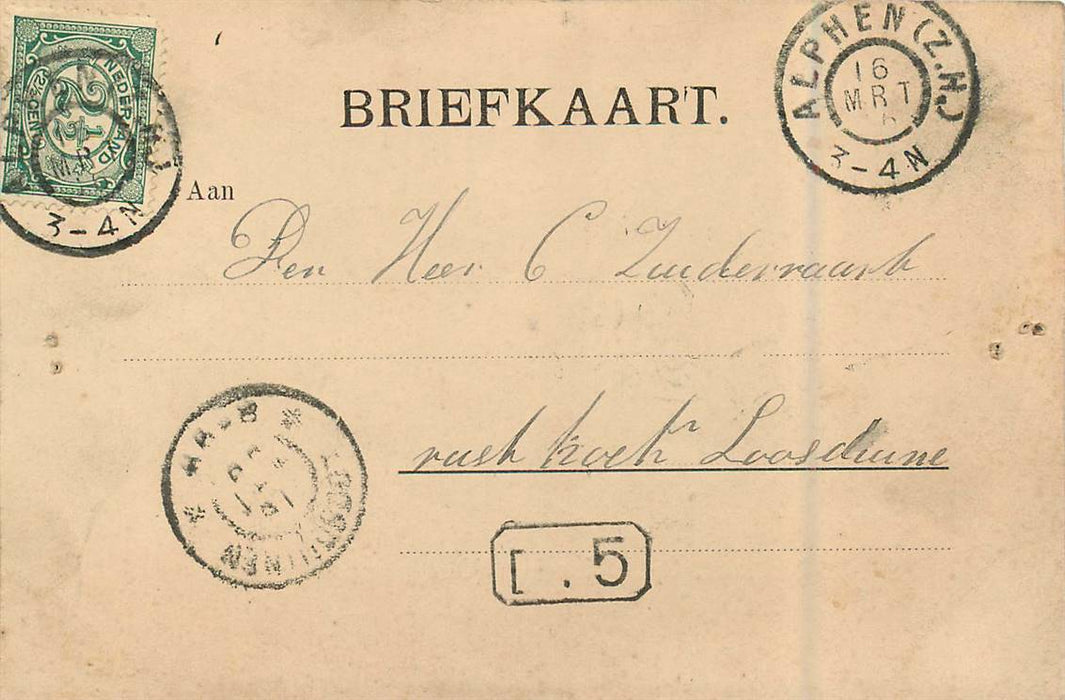 NEDERLAND
2½
2½ CENT
3-4N
BRIEFKAART.
ALPHEN (Z.H.)
16
MRT
3-4N
Aan
Den Heer C Zuiderraart
rust hoek Loosduine
LOOSDUINEN
8
. 5